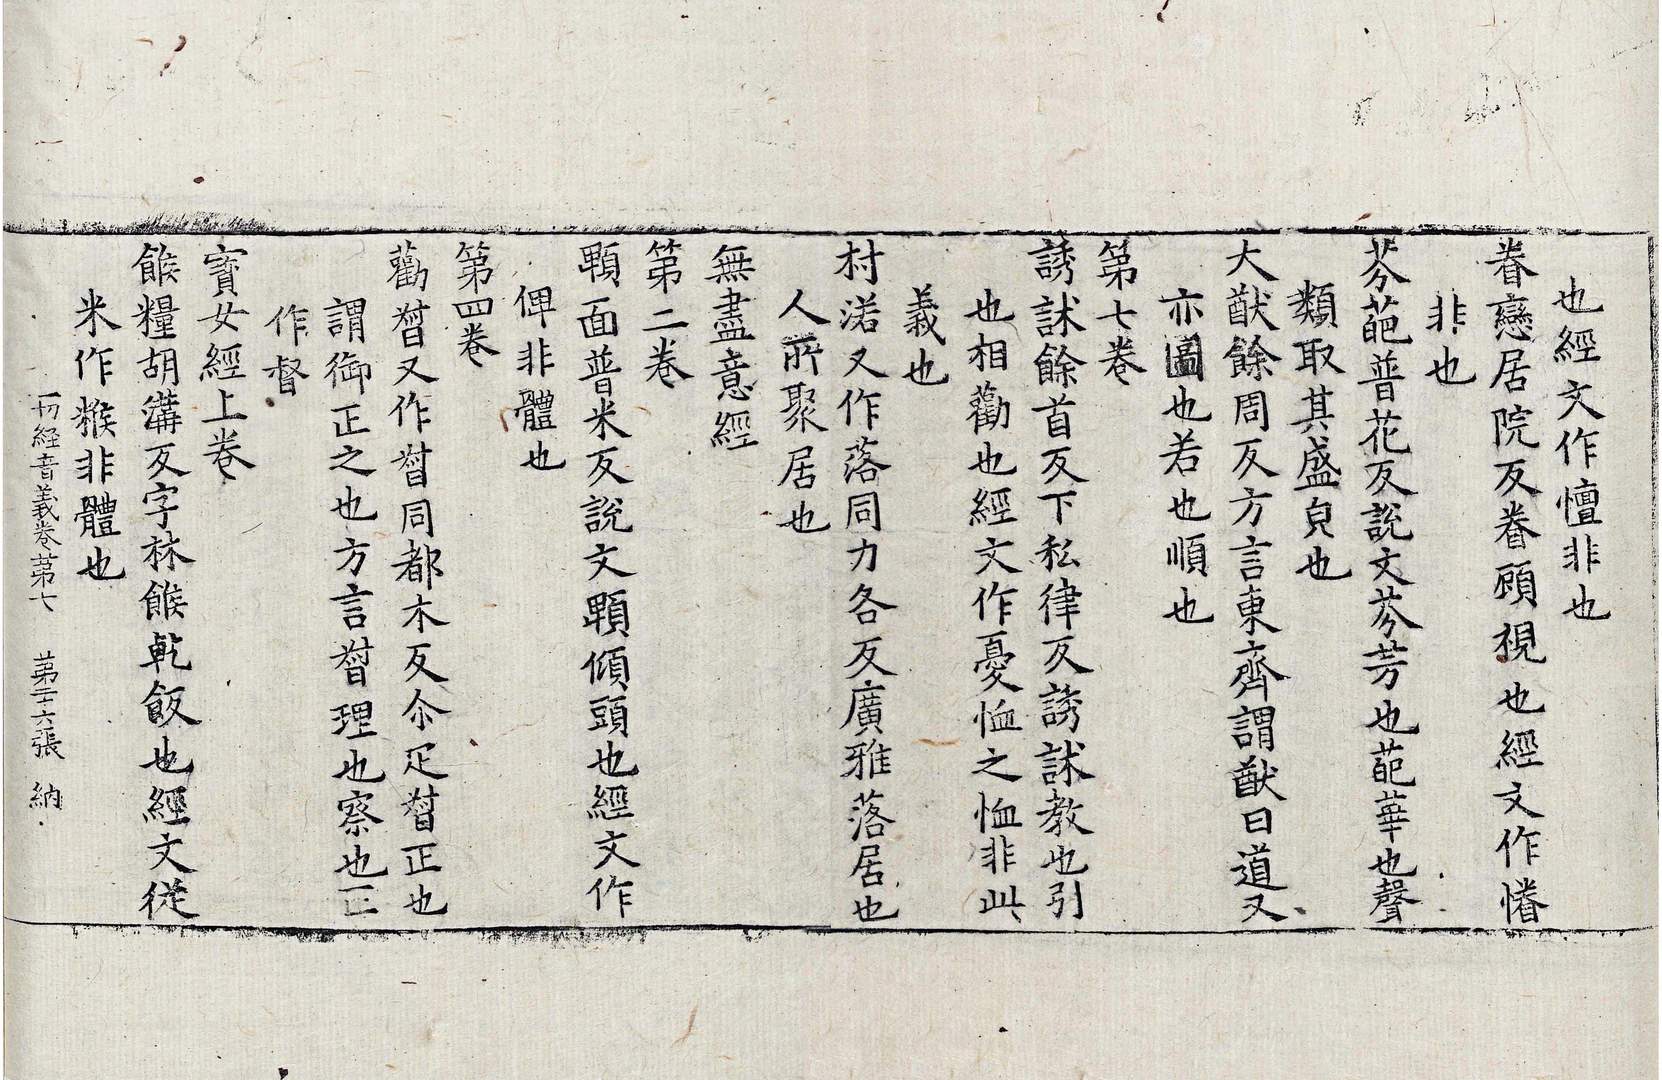 也經文作懛非也
眷戀居院反眷顧視也經文作惓
非也
芬葩普花反說文芬芳也葩華也聲
類取其盛皃也
大猷餘周反方言東齊謂猷曰道又
亦圖也若也順也
第七卷
誘訹餘首反下私律反誘訹教也引
也相勸也經文作憂恤之恤非此
義也
村渃又作落同力各反廣雅落居也
人所聚居也
無盡意經
第二卷
頼面普米反說文頼傾頭也經文作
俾非體也
第四卷
勸督又作督同都木反尒疋督正也
謂御正之也方言督理也察也正
作督
寶女經上卷
餱糧胡溝反字林餱乾飯也經文從
米作糇非體也
一切経音義卷第七 第二十六張 納